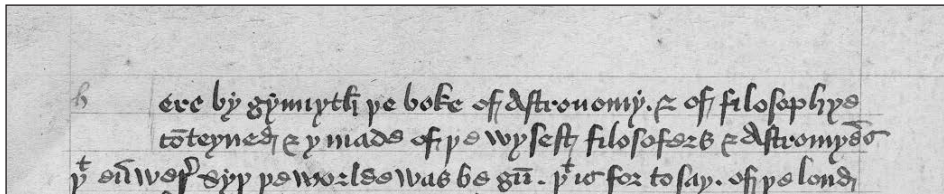 h ere by gynnyth þe boke of Astronomy. & of filosophye
cōteyned & y made of þe wysest filosofers & Astromyēs
þͭ eū weꝛ̉ syþ þe worlde was be gū. þͭ is for to say. of þe lond